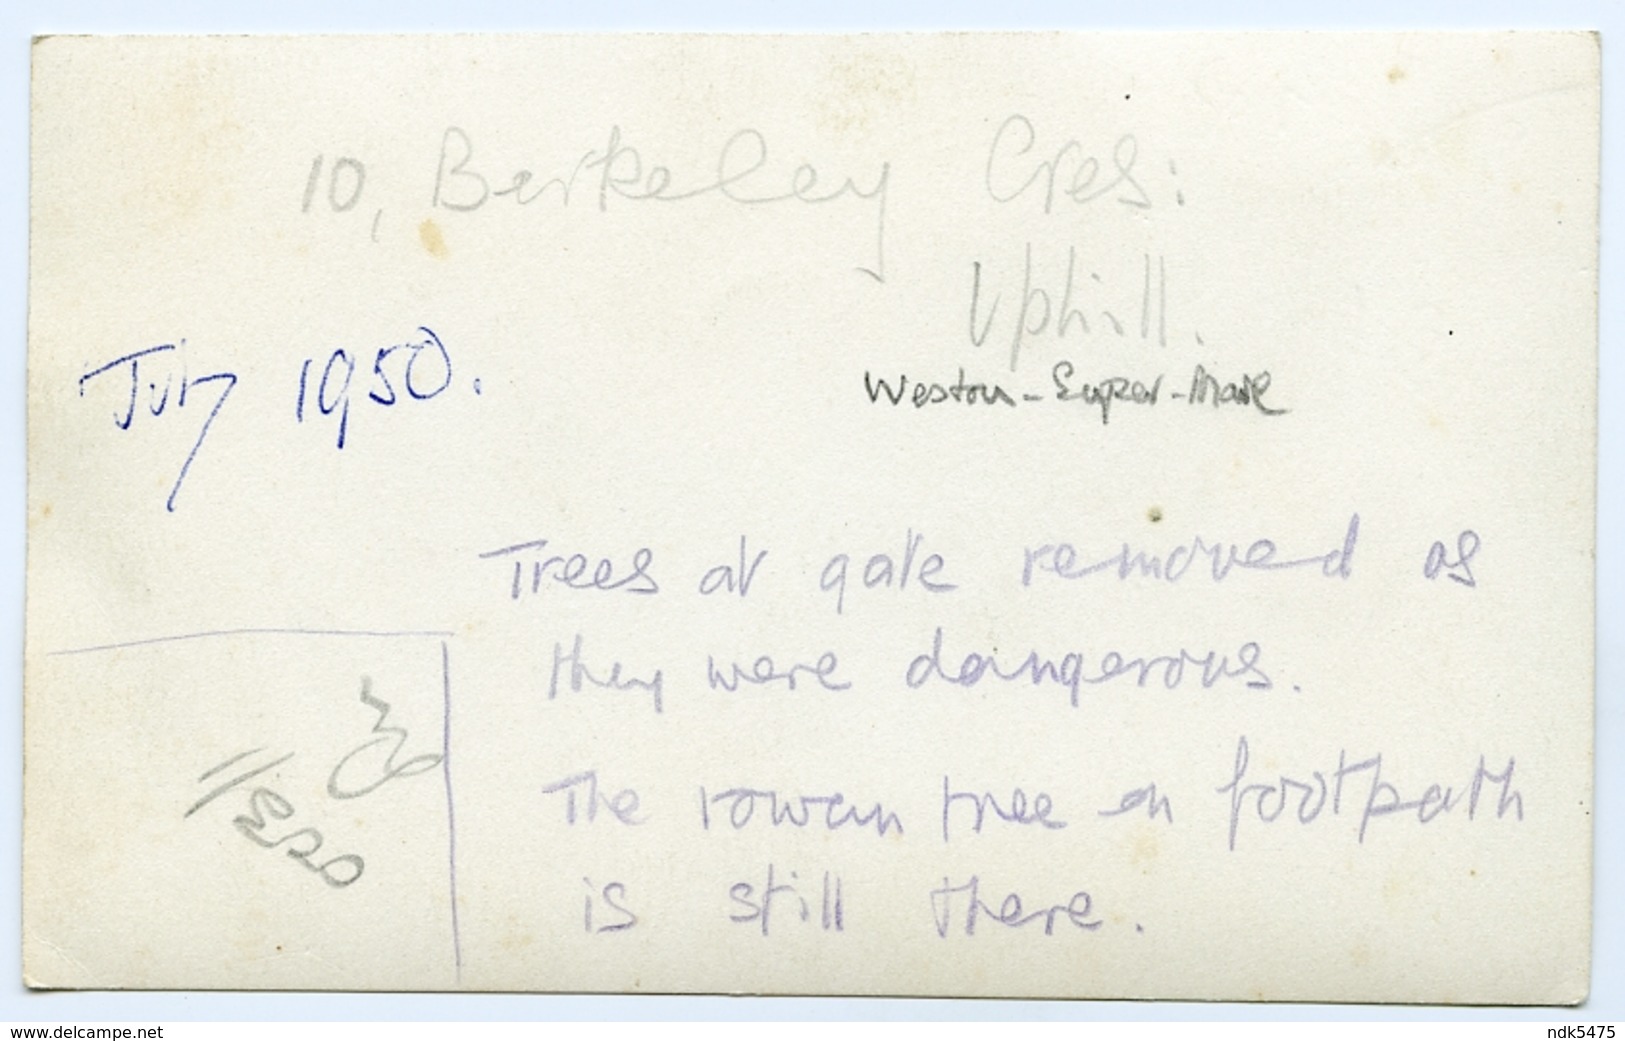 10, Berkeley Cres:
Uphill.
Weston-Super-Mare
July 1950.
Trees at gate removed as
they were dangerous.
The rowan tree on footpath
is still there.
www.delcampe.net
ndk5475